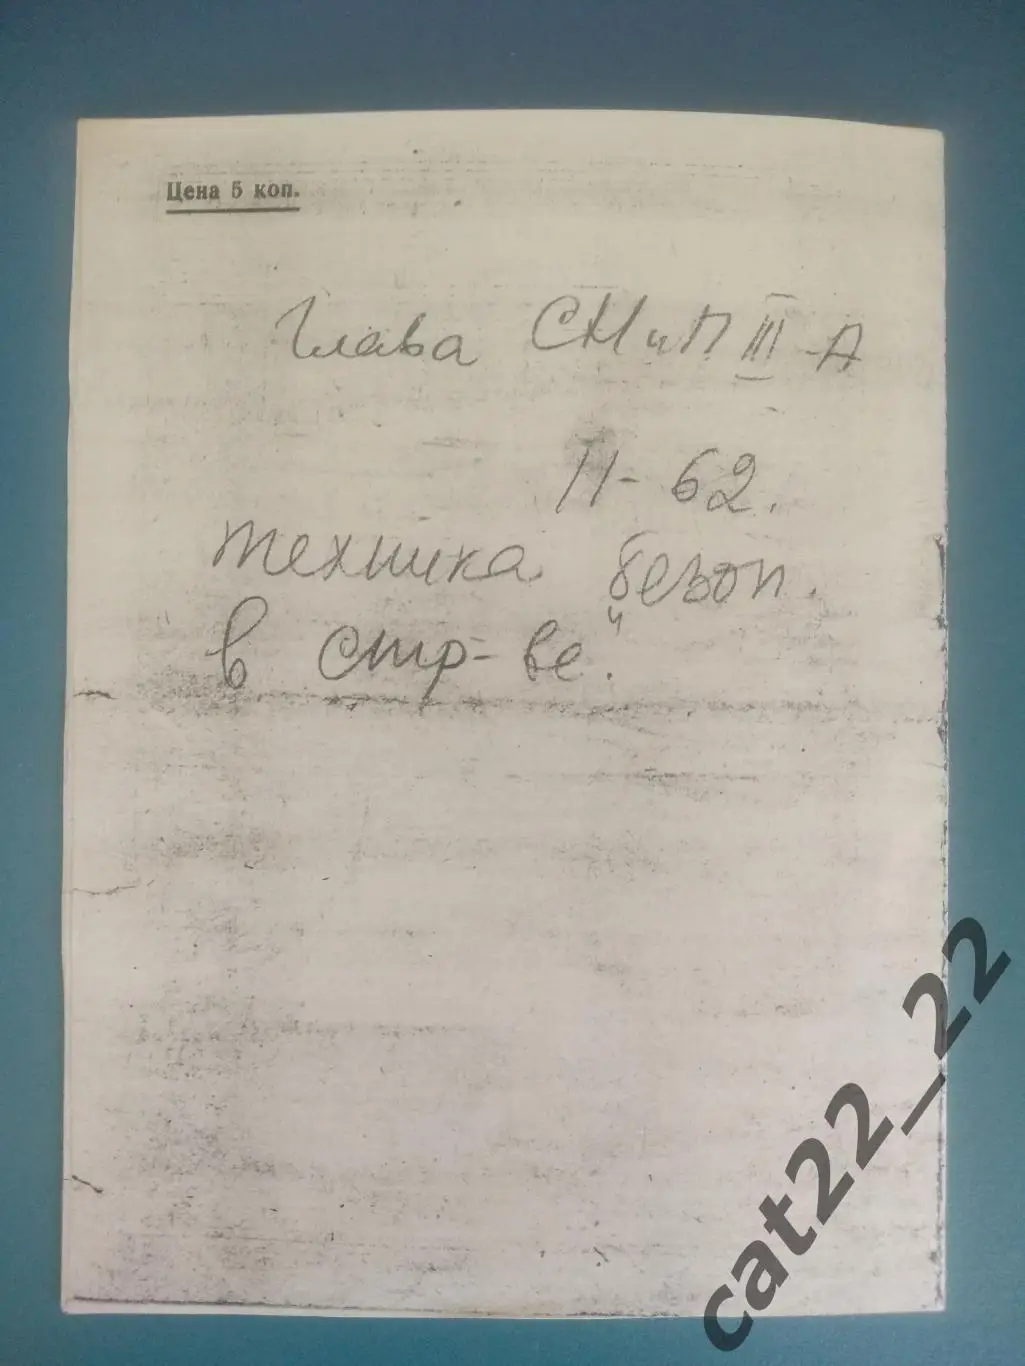 Цена 5 коп.
Глава СНиП III-А
11-62.
техника безоп.
в стр-ве."
cat22_22